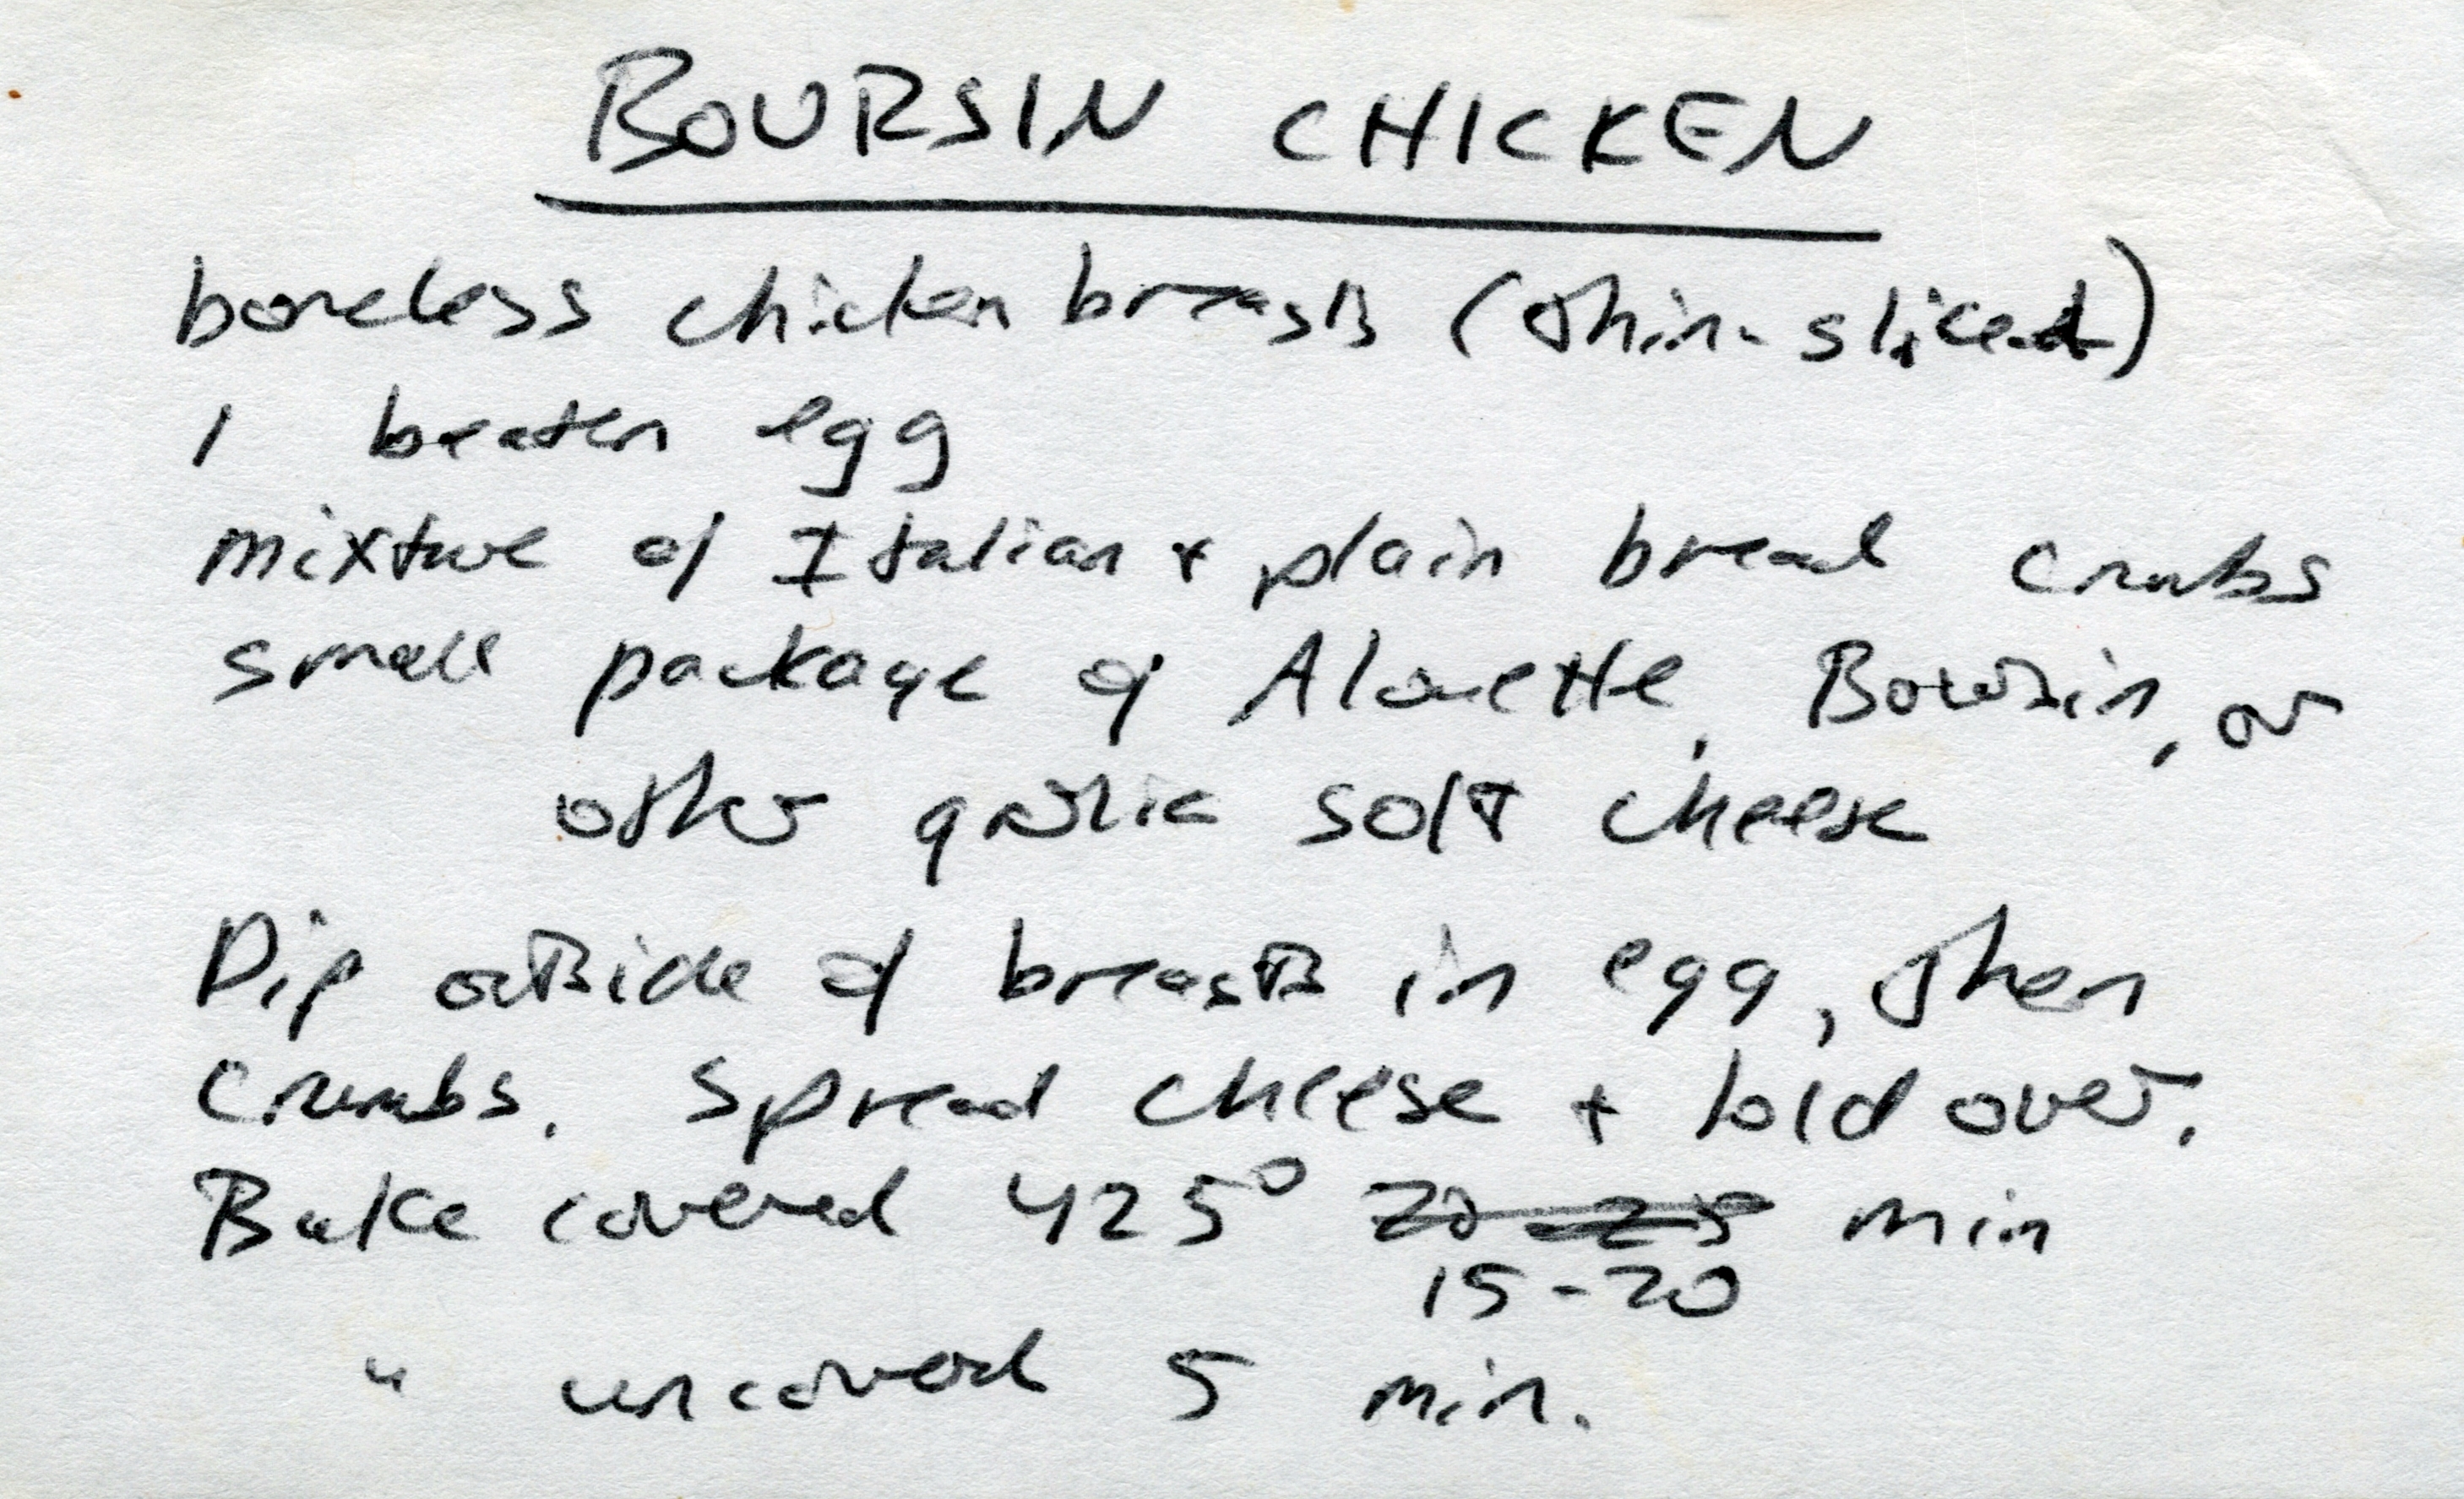 BOURSIN CHICKEN
boneless chicken breasts (thin-sliced)
1 beaten egg
mixture of Italian + plain bread crumbs
small package of Alouette, Boursin, or
other garlic soft cheese
Dip outside of breasts in egg, then
crumbs. Spread cheese + fold over.
Bake covered 425° 20-25 min
15-20
" uncovered 5 min.